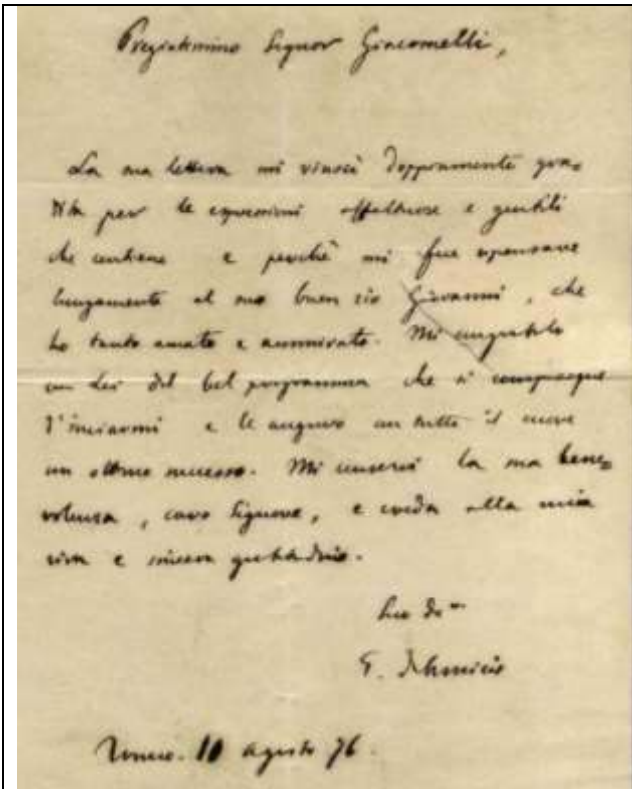 Pregiatissimo Signor Giacomelli,
La sua lettera mi riuscì doppiamente gra=
dita per le espressioni affettuose e gentili
che contiene e perchè mi fece ripensare
lungamente al suo buon zio Giovanni, che
ho tanto amato e ammirato. Mi congratulo
con Lei del bel programma che si compiacque
d'inviarmi e le auguro con tutto il cuore
un ottimo successo. Mi conservi la sua bene=
volenza, caro Signore, e creda alla mia
viva e sincera gratitudine.
Suo
E. De Amicis
10 agosto 76.